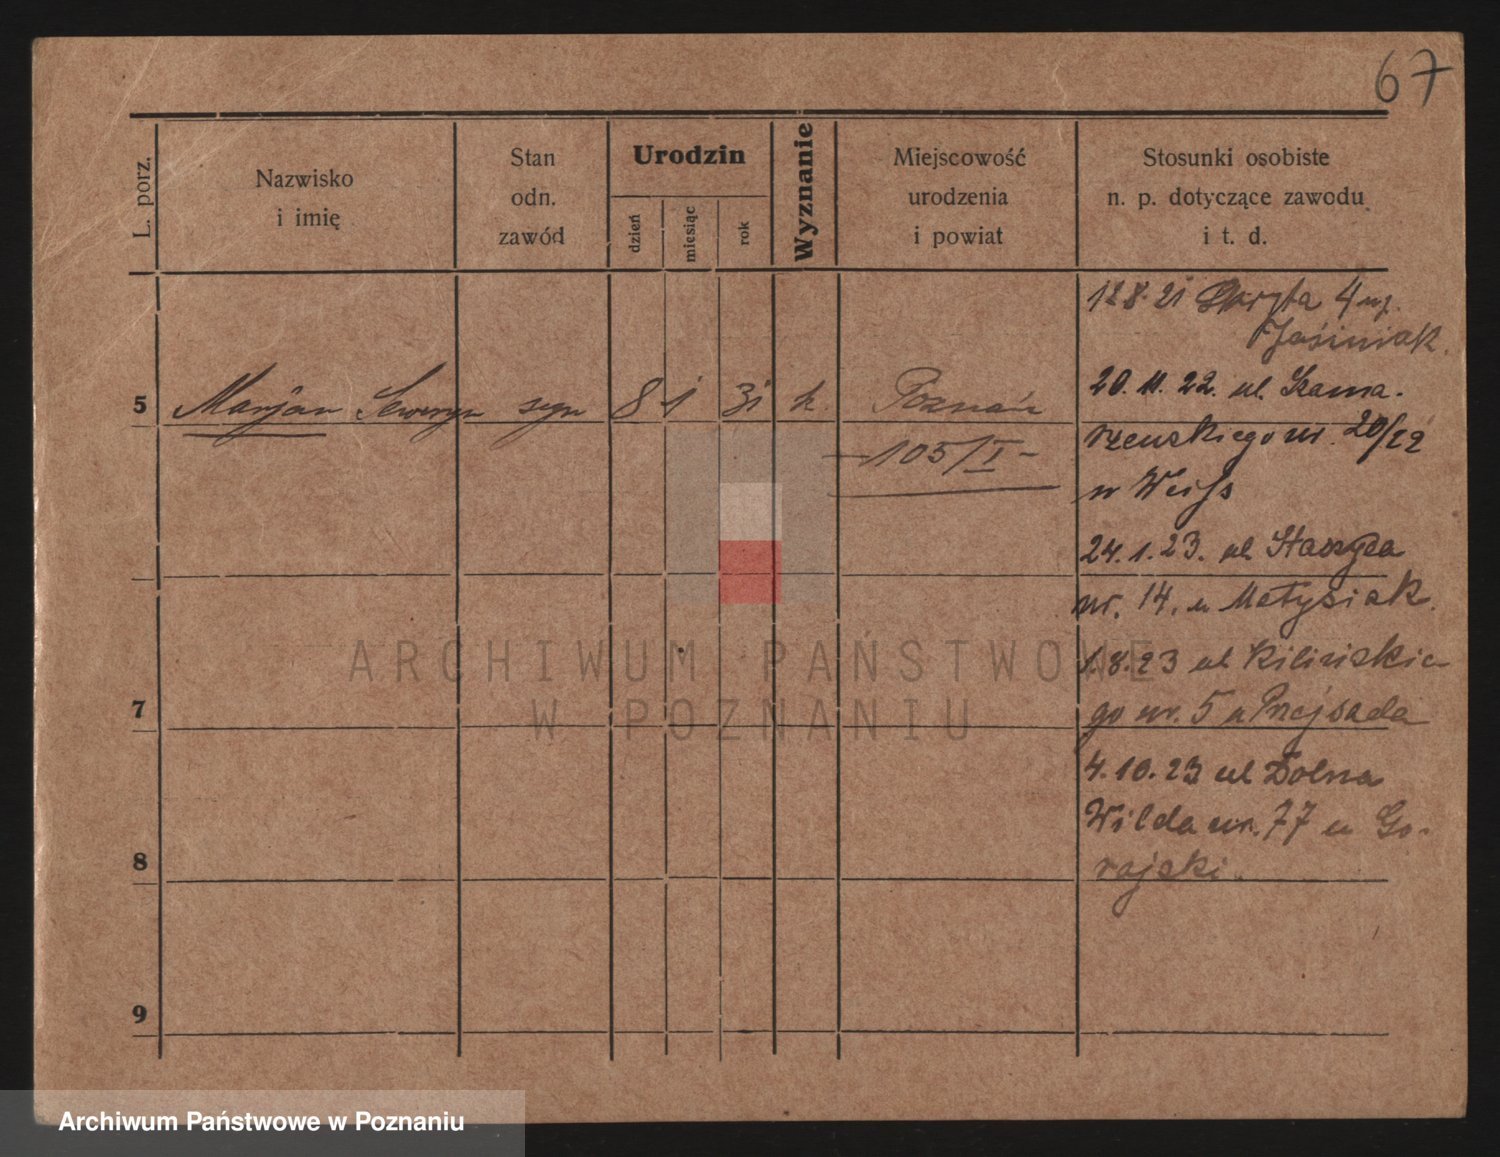 67
L. porz.
Nazwisko
i imię
Stan
odn.
zawód
Urodzin
dzień
miesiąc
rok
Wyznanie
Miejscowość
urodzenia
i powiat
Stosunki osobiste
n. p. dotyczące zawodu
i t. d.
12.8.21 Skryta 4 u
Jaśiniak.
5 Marjan Seweryn syn 8 1 31 k. Poznań
105/I
20.11.22. ul. Szama-
rzewskiego nr. 20/22
u Weiss
24.1.23. ul. Staszyca
nr. 14. u Matysiak.
1.8.23 ul Kilińskie-
go nr. 5 u Przejsada
4.10.23 ul Dolna
Wilda nr. 77 u Go-
rajski.
7
8
9
ARCHIWUM PAŃSTWOWE
W POZNANIU
Archiwum Państwowe w Poznaniu